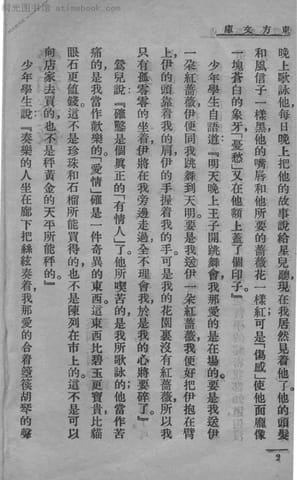 陽光图书馆 www.atimebook.com
庫文方東
晚上歌詠他每日晚上他把他的故事說給星兒聽現在我居然見着他了他的頭髮
和風信子一樣黑他的嘴唇和他所要的薔薇花一樣紅可是『傷感』使他面龐像
一塊蒼白的象牙『憂愁』又在他額上蓋了個印子』
少年學生自語道『明天晚上王子開跳舞會我那愛的是在場的要是我送伊
一朵紅薔薇伊便同我跳舞到天明要是我送伊一朵紅薔薇我便好把伊抱在臂
上伊的頭靠着我的肩伊的手握着我的手可是我的花園裏沒有紅薔薇所以我
只有孤零零的坐着伊將在我旁邊走過全不理會我於是我的心將要碎了』
鶯兒說『確鑿是個眞正的『有情人』了他所喫苦的是我所歌詠的他當作苦
痛的是我當作歡樂的『愛情』確是一件奇異的東西這東西比碧玉更寶貴比貓
眼石更值錢這不是珍珠和石榴所能買得的也不是陳列在市上的這不是可以
向店家去買的也不是秤黃金的天平所能秤的』
少年學生說『奏樂的人坐在廊下把絲絃奏着我那愛的合着箜篌胡琴的聲
2